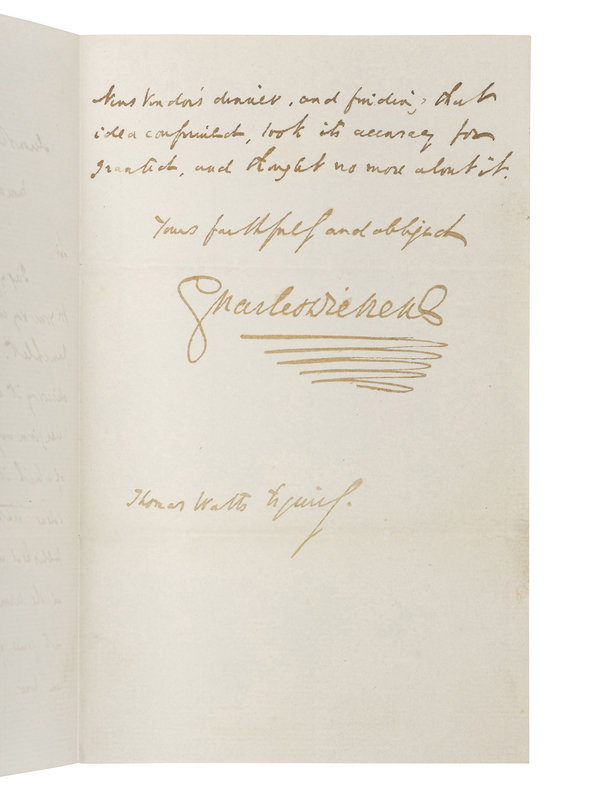 News Vendors dinner, and finding that
idea confirmed, took its accuracy for
granted, and thought no more about it.
Yours faithfully and obliged
Charles Dickens
Thomas Watts Esquire.